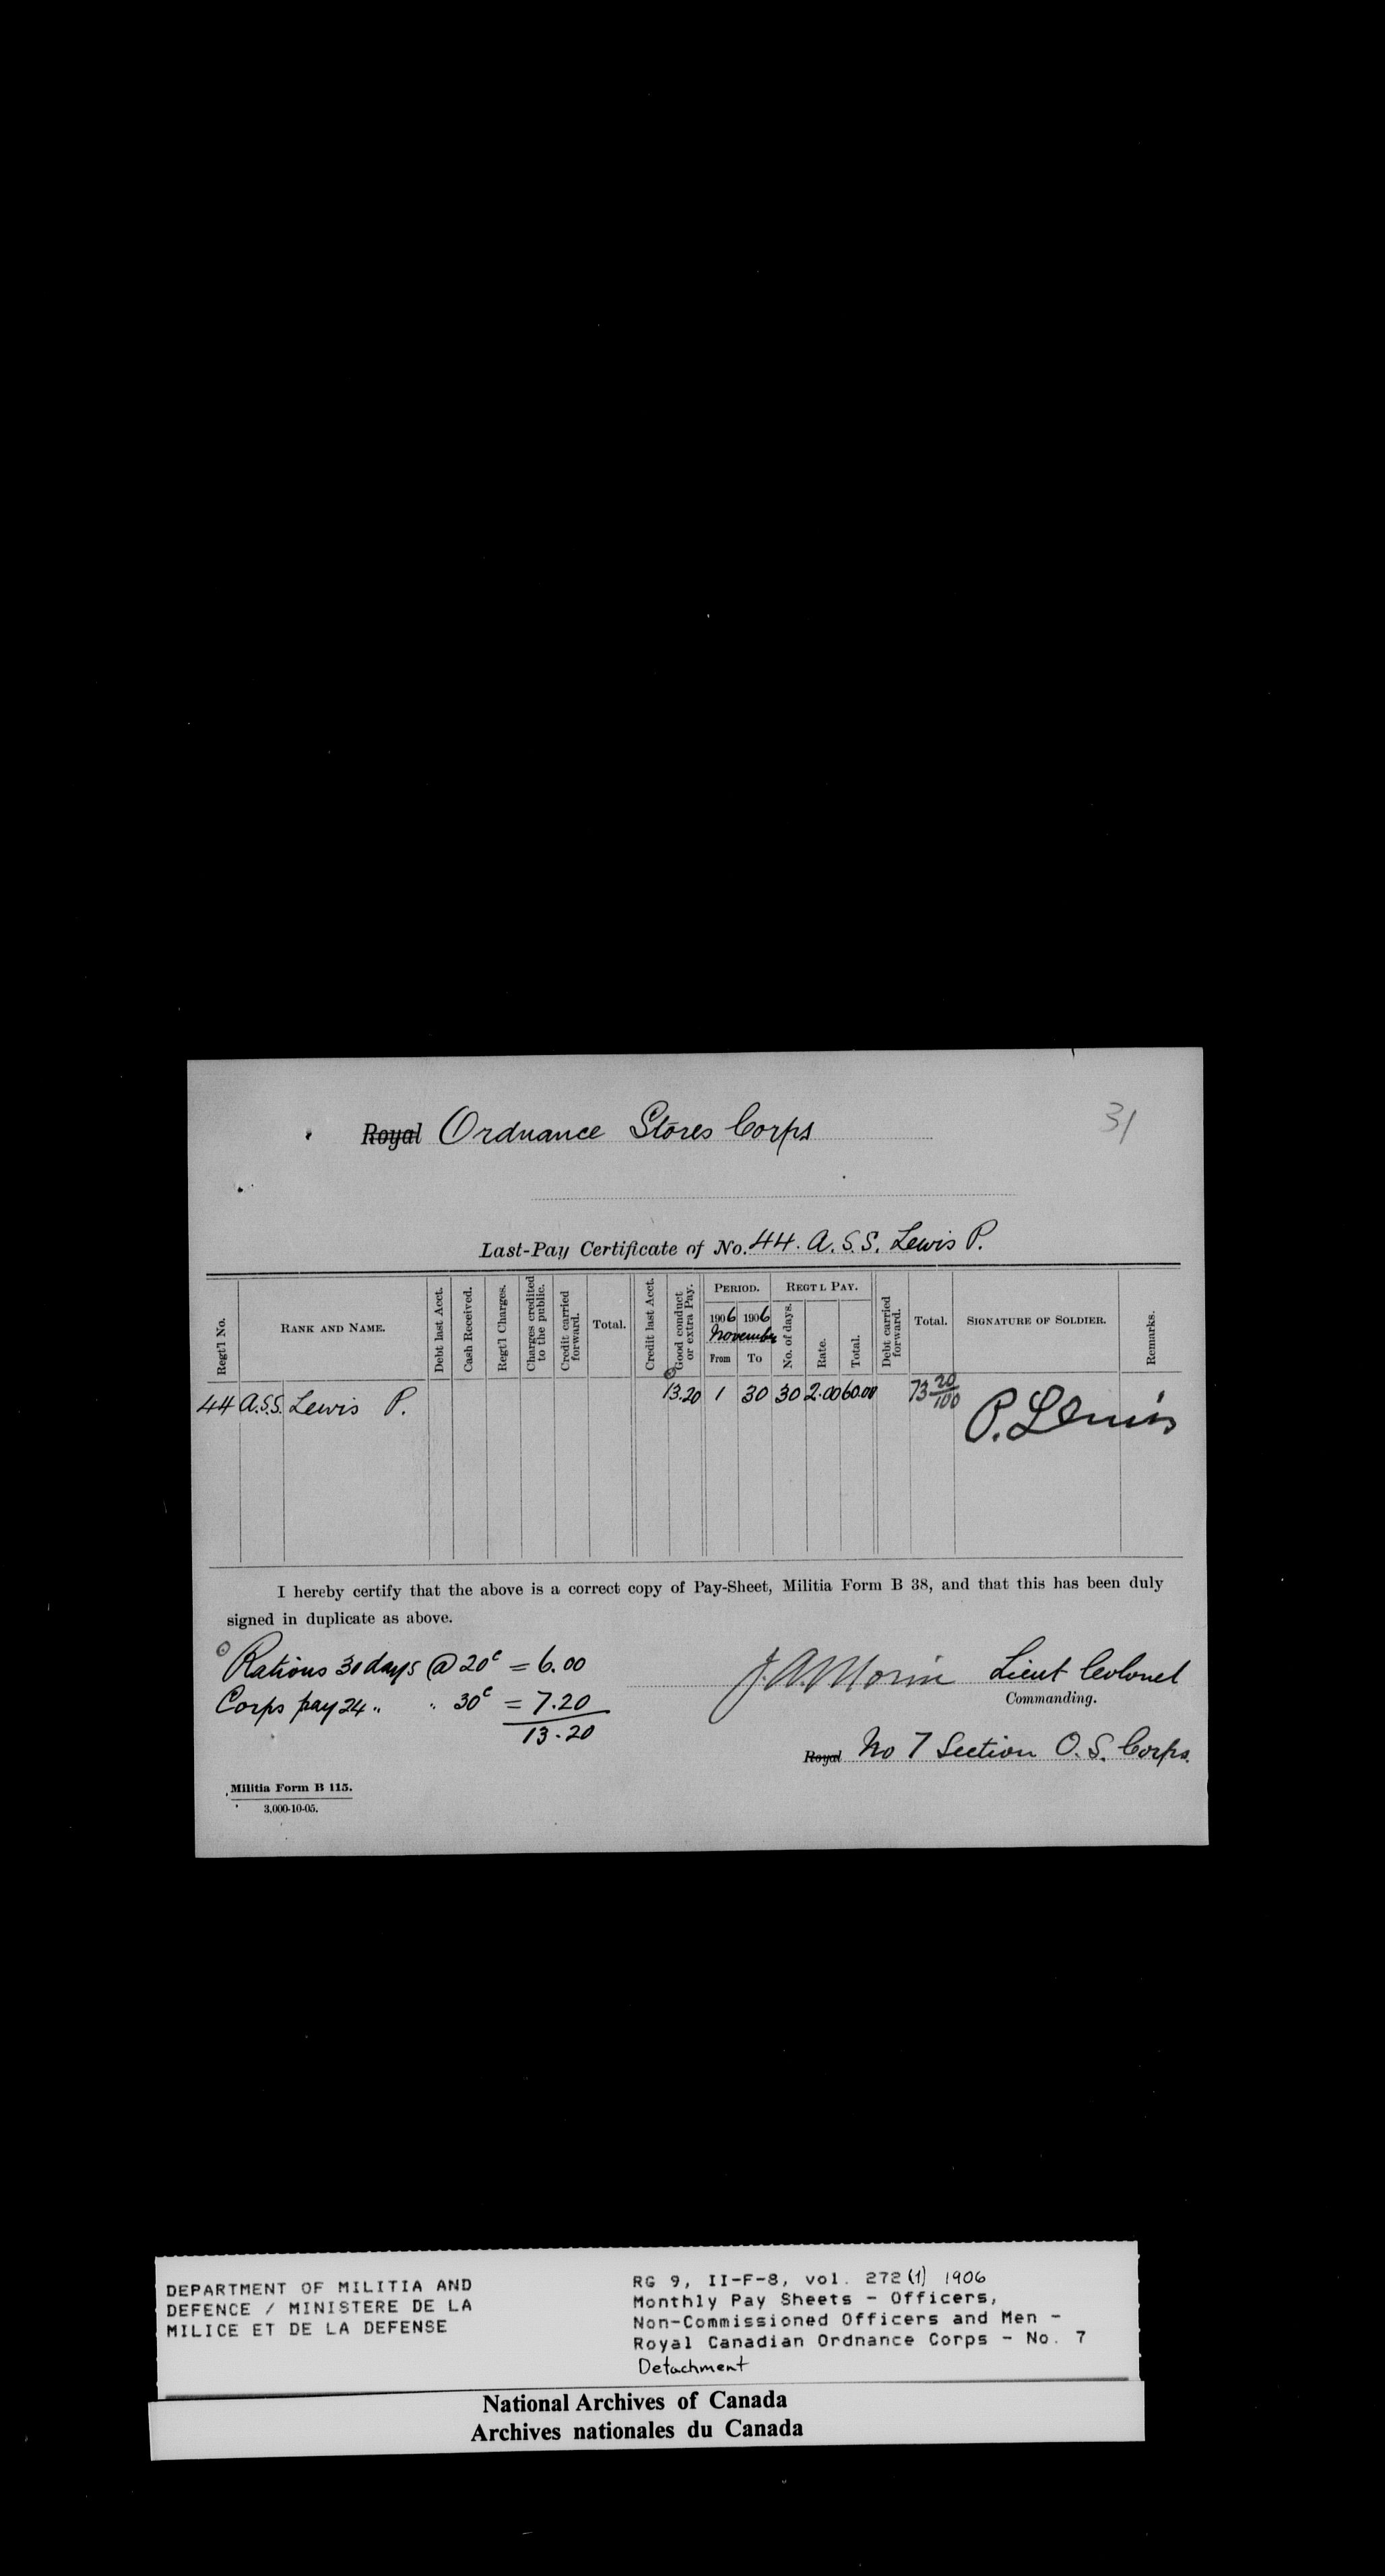 31
Royal Ordnance Stores Corps
Last-Pay Certificate of No. 44. A.S.S. Lewis P.
Regt'l No. RANK AND NAME. Debt last Acct. Cash Received. Regt'l Charges. Charges credited to the public. Credit carried forward. Total. Credit last Acct. Good conduct or extra Pay. PERIOD. 1906 1906 November From To REGT'L PAY. No. of days. Rate. Total. Debt carried forward. Total. SIGNATURE OF SOLDIER. Remarks.
44 A.S.S. Lewis P. 13.20 1 30 30 2.00 60.00 73 20/100 P. Lewis
I hereby certify that the above is a correct copy of Pay-Sheet, Militia Form B 38, and that this has been duly
signed in duplicate as above.
Rations 30 days @ 20c = 6.00
Corps pay 24 " " 30c = 7.20
13.20
J. A. Morin Lieut Colonel
Commanding.
Royal No 7 Section O.S. Corps.
Militia Form B 115.
3,000-10-05.
DEPARTMENT OF MILITIA AND
DEFENCE / MINISTERE DE LA
MILICE ET DE LA DEFENSE
RG 9, II-F-8, vol. 272 (1) 1906
Monthly Pay Sheets - Officers,
Non-Commissioned Officers and Men -
Royal Canadian Ordnance Corps - No. 7
Detachment
National Archives of Canada
Archives nationales du Canada